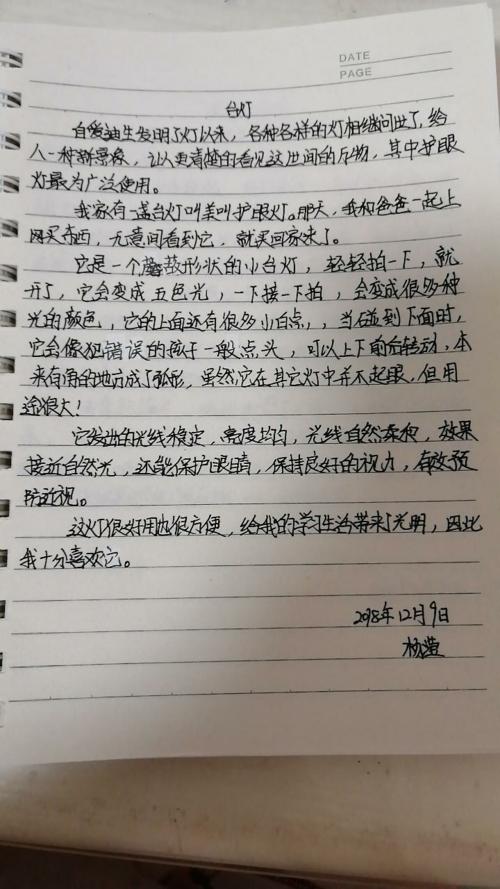 DATE
PAGE
台灯
自爱迪生发明了灯以来，各种各样的灯相继问世了，给
人一种新景像，让人更清楚的看见这世间的万物，其中护眼
灯最为广泛使用。
我家有一盏台灯叫美叫护眼灯。那天，我和爸爸一起上
网买东西，无意间看到它，就买回家来了。
它是一个蘑菇形状的小台灯，轻轻拍一下，就
开了，它会变成五色光，一下接一下拍，会变成很多种
光的颜色，它的上面还有很多小白点，，当碰到下面时，
它会像犯错误的孩子一般点头，可以上下前后转动，本
来有角的地方成了弧形，虽然它在其它灯中并不起眼，但用
途很大！
它发出的光线稳定，亮度均匀，光线自然柔和，效果
接近自然光，还能保护眼睛，保持良好的视力，有效预
防近视。
这灯很好用也很方便，给我的学习生活带来了光明，因此
我十分喜欢它。
2018年12月9日
杨